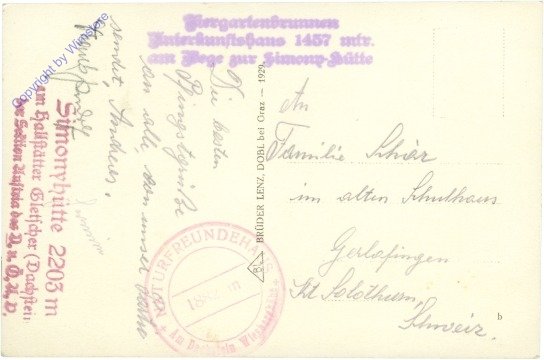 Tiergartenbrunnen
Unterkunftshaus 1457 mtr.
am Wege zur Simony-Hütte
Copyright by Winstore
Die besten
Pfingstgrüße
an alle, von unser
sendet, Andreas.
Simonyhütte 2203 m
am Hallstätter Gletscher (Dachstein)
der Sektion Austria des D. u. Ö. A. V.
NATURFREUNDEHAUS
1882 m
Am Dachstein
BRÜDER LENZ, DOBL bei Graz — 1929
BL
An
Familie Schär
im alten Schulhaus
Gerlafingen
Kt. Solothurn,
Schweiz.
b